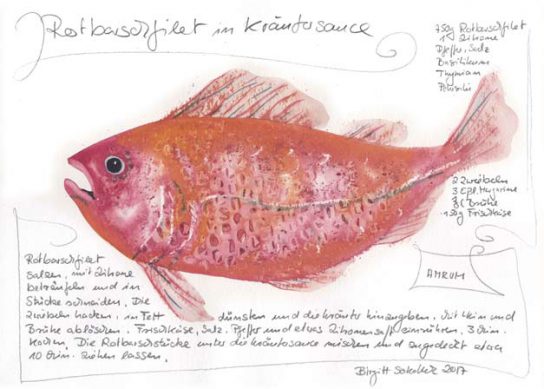 Rotbarschfilet in Kräutersauce
750g Rotbarschfilet
1 Zitrone
Pfeffer, Salz
Basilikum
Thymian
Petersilie
2 Zwiebeln
3 EßL. Margarine
Brühe
150g Frischkäse
AMRUM
Rotbarschfilet
salzen, mit Zitrone
beträufeln und in
Stücke schneiden. Die
Zwiebeln hacken, in Fett dünsten und die Kräuter hinzugeben. Mit und
Brühe ablöschen. Frischkäse, Salz, Pfeffer und etwas Zitronensaft einrühren. 3 Min.
kochen. Die Rotbarschstücke unter die Kräutersauce mischen und zugedeckt etwa
10 Min. ziehen lassen.
Birgitt 2017